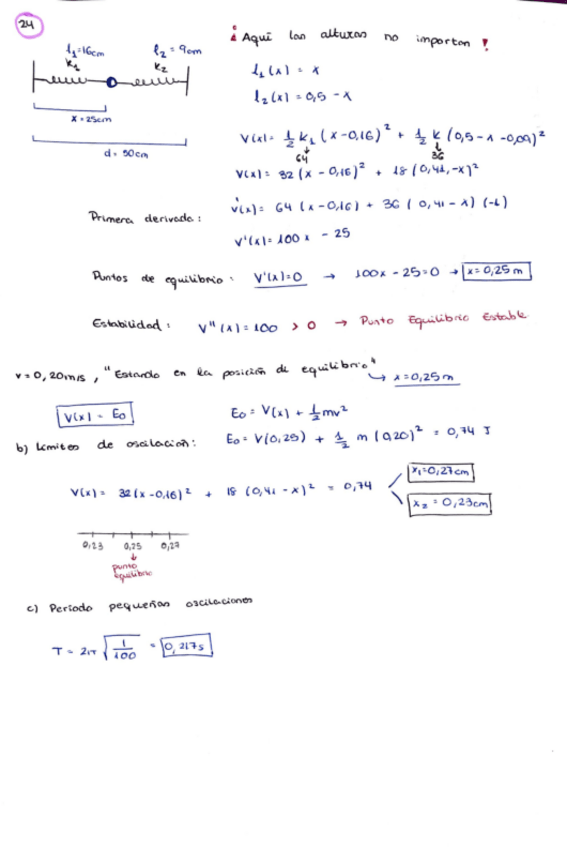 24
¡ Aquí las alturas no importan !
l₁=16cm l₂ = 9cm
k₁ k₂
l₁(x) = x
l₂(x) = 0,5 - x
x = 25cm
d = 50cm
V(x) = 1/2 k₁ (x - 0,16)² + 1/2 k (0,5 - x - 0,09)²
64 36
V(x) = 32 (x - 0,16)² + 18 (0,41 - x)²
Primera derivada:
V'(x) = 64 (x - 0,16) + 36 (0,41 - x) (-1)
V'(x) = 100 x - 25
Puntos de equilibrio: V'(x)=0 → 100x - 25=0 → x = 0,25 m
Estabilidad: V''(x) = 100 > 0 → Punto Equilibrio Estable
v = 0,20m/s, "Estando en la posición de equilibrio"
↳ x = 0,25m
V(x) = E₀
E₀ = V(x) + 1/2 mv²
b) Límites de oscilación: E₀ = V(0,25) + 1/2 m (0,20)² = 0,74 J
V(x) = 32(x - 0,16)² + 18 (0,41 - x)² = 0,74
x₁=0,27cm
x₂ = 0,23cm
0,23 0,25 0,27
punto equilibrio
c) Período pequeñas oscilaciones
T = 2π √(1/100) = 0,217s